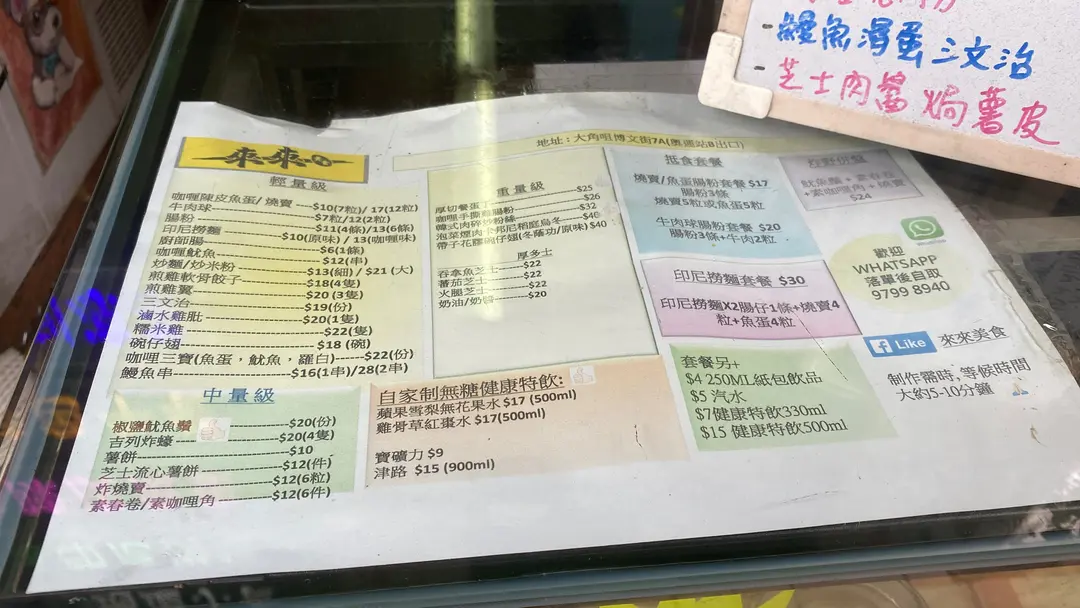 鰻魚滑蛋三文治
芝士肉醬焗薯皮
來來
地址：大角咀博文街7A(奧運站B出口)
輕量級
咖喱陳皮魚蛋/ 燒賣 --$10(7粒)/ 17(12粒)
牛肉球--$7粒/12(2粒)
腸粉--$11(4條)/13(6條)
印尼撈麵--$10(原味) / 13(咖喱味)
廚師腸--$6(1條)
咖喱魷魚--$12(串)
炒麵/炒米粉--$13(細) / $21 (大)
煎雞軟骨餃子--$18(4隻)
煎雞翼--$20 (3隻)
三文治--$19(份)
滷水雞肶--$20(1隻)
糯米雞--$22(隻)
碗仔翅--$18 (碗)
咖喱三寶(魚蛋，魷魚，羅白)--$22(份)
鰻魚串--$16(1串)/28(2串)
中量級
椒鹽魷魚鬚--$20(份)
吉列炸蠔--$20(4隻)
薯餅--$10
芝士流心薯餅--$12(件)
炸燒賣--$12(6粒)
素春卷/素咖喱角--$12(6件)
重量級
厚切餐蛋丁--$25
咖喱手撕雞腸粉--$26
韓式肉碎炒粉絲--$32
泡菜煙肉金邦尼稻庭烏冬--$40
帶子花膠碗仔翅(冬蔭功/原味)$40
厚多士
吞拿魚芝士--$22
蕃茄芝士--$22
火腿芝士--$22
奶油/奶醬--$20
自家制無糖健康特飲:
蘋果雪梨無花果水 $17 (500ml)
雞骨草紅棗水 $17(500ml)
寶礦力 $9
津路 $15 (900ml)
抵食套餐
燒賣/魚蛋腸粉套餐 $17
腸粉3條
燒賣5粒或魚蛋5粒
牛肉球腸粉套餐 $20
腸粉3條+牛肉2粒
印尼撈麵套餐 $30
印尼撈麵X2腸仔1條+燒賣4
粒+魚蛋4粒
套餐另+
$4 250ML紙包飲品
$5 汽水
$7健康特飲330ml
$15 健康特飲500ml
魷魚鬚+素春卷
+素咖喱角+燒賣
$24
歡迎
WHATSAPP
落單後自取
9799 8940
Like 來來美食
制作需時, 等候時間
大約5-10分鐘